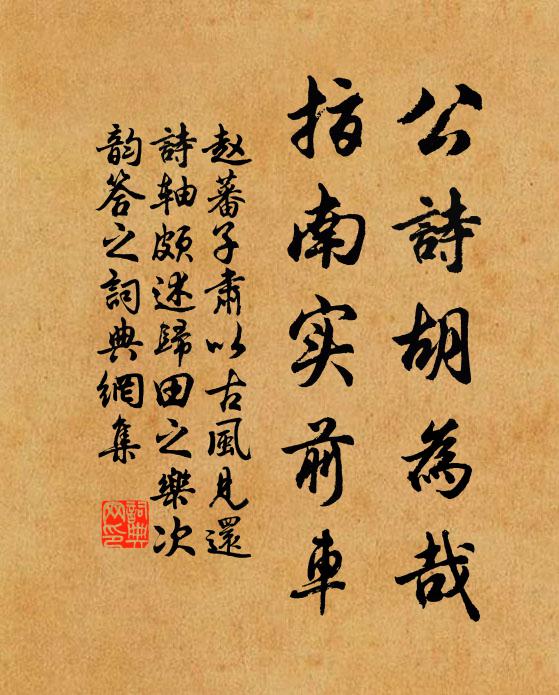 公詩胡為哉
指南实前車
赵蕃子肅以古風見還
詩轴頗述歸田之樂次
韵答之詞典網集
詞典
网印